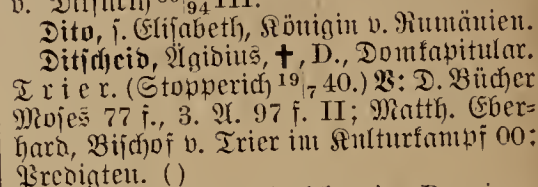 Dito, s. Elisabeth, Königin v. Rumänien.
Ditscheid, Ägidius, ✝, D., Domkapitular.
Trier. (Stopperich 19/7 40.) V: D. Bücher
Moses 77 f., 3. A. 97 f. II; Matth. Eber=
hard, Bischof v. Trier im Kulturkampf 00:
Predigten. ()